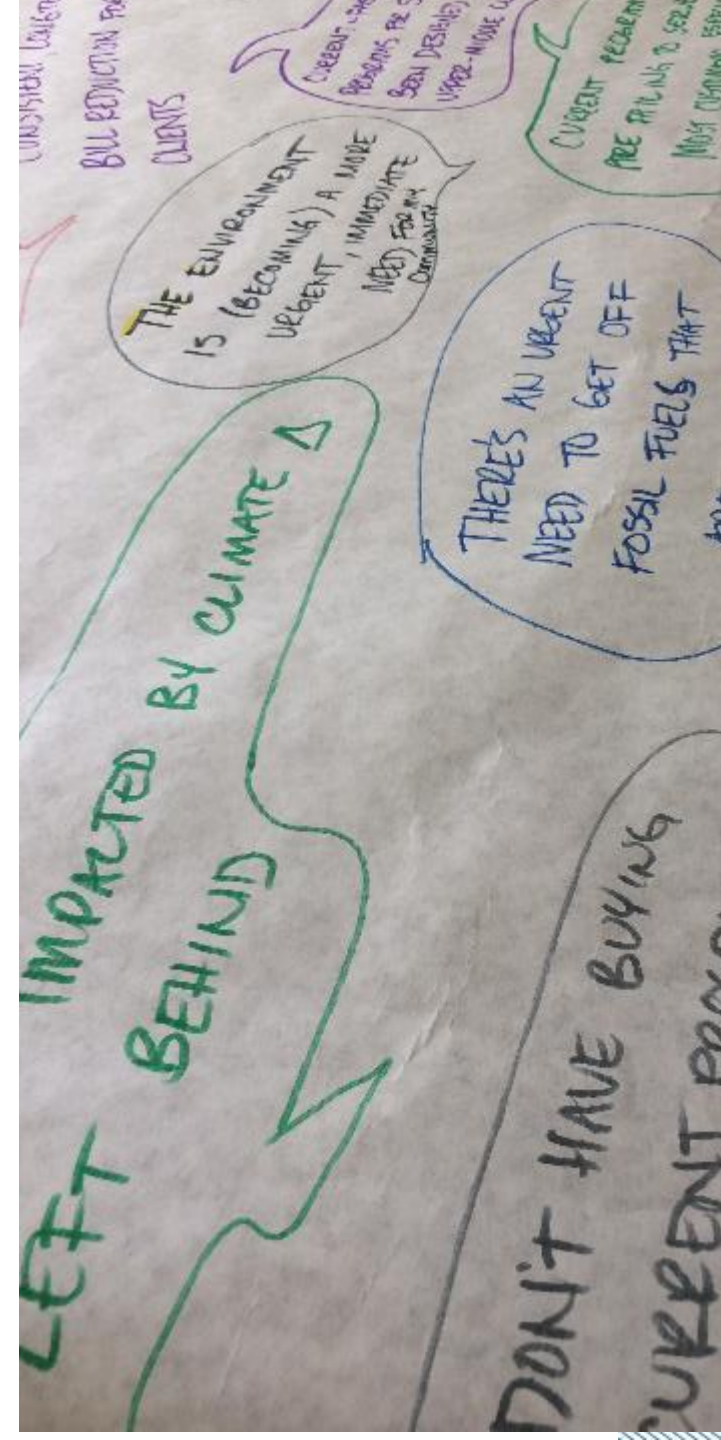 CONSISTENT
BILL REDUCTION FOR
CLIENTS
CURRENT
PROGRAMS FOR
BEEN DESIGNED
UPPER-MIDDLE
CURRENT PROGRAM
ARE FAILING TO SERVE
MOST
THE ENVIRONMENT
IS (BECOMING) A MORE
URGENT, IMMEDIATE
NEED FOR MY
COMMUNITY
THERE'S AN URGENT
NEED TO GET OFF
FOSSIL FUELS THAT
IMPACTED BY CLIMATE Δ
LEFT BEHIND
DON'T HAVE BUYING
CURRENT